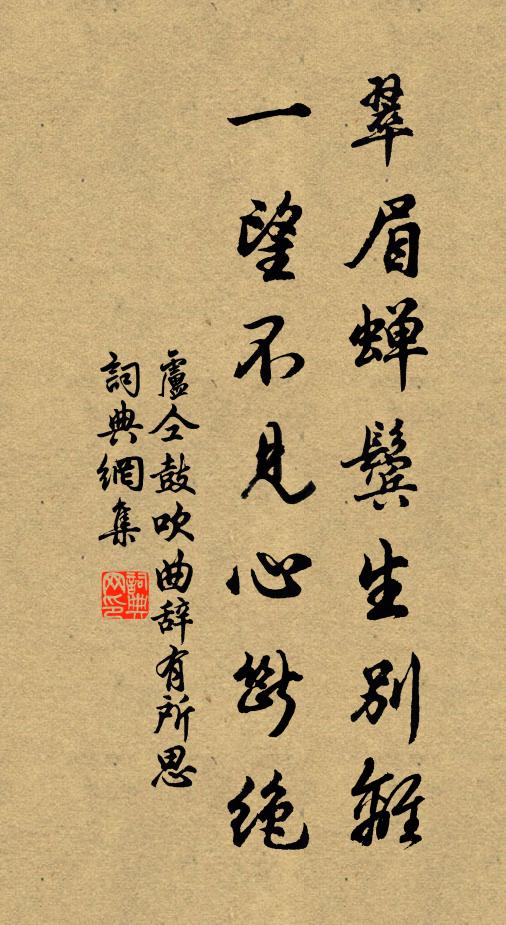 翠眉蝉鬓生别離
一望不見心斷绝
盧仝鼓吹曲辞有所思
詞典網集
詞典网印